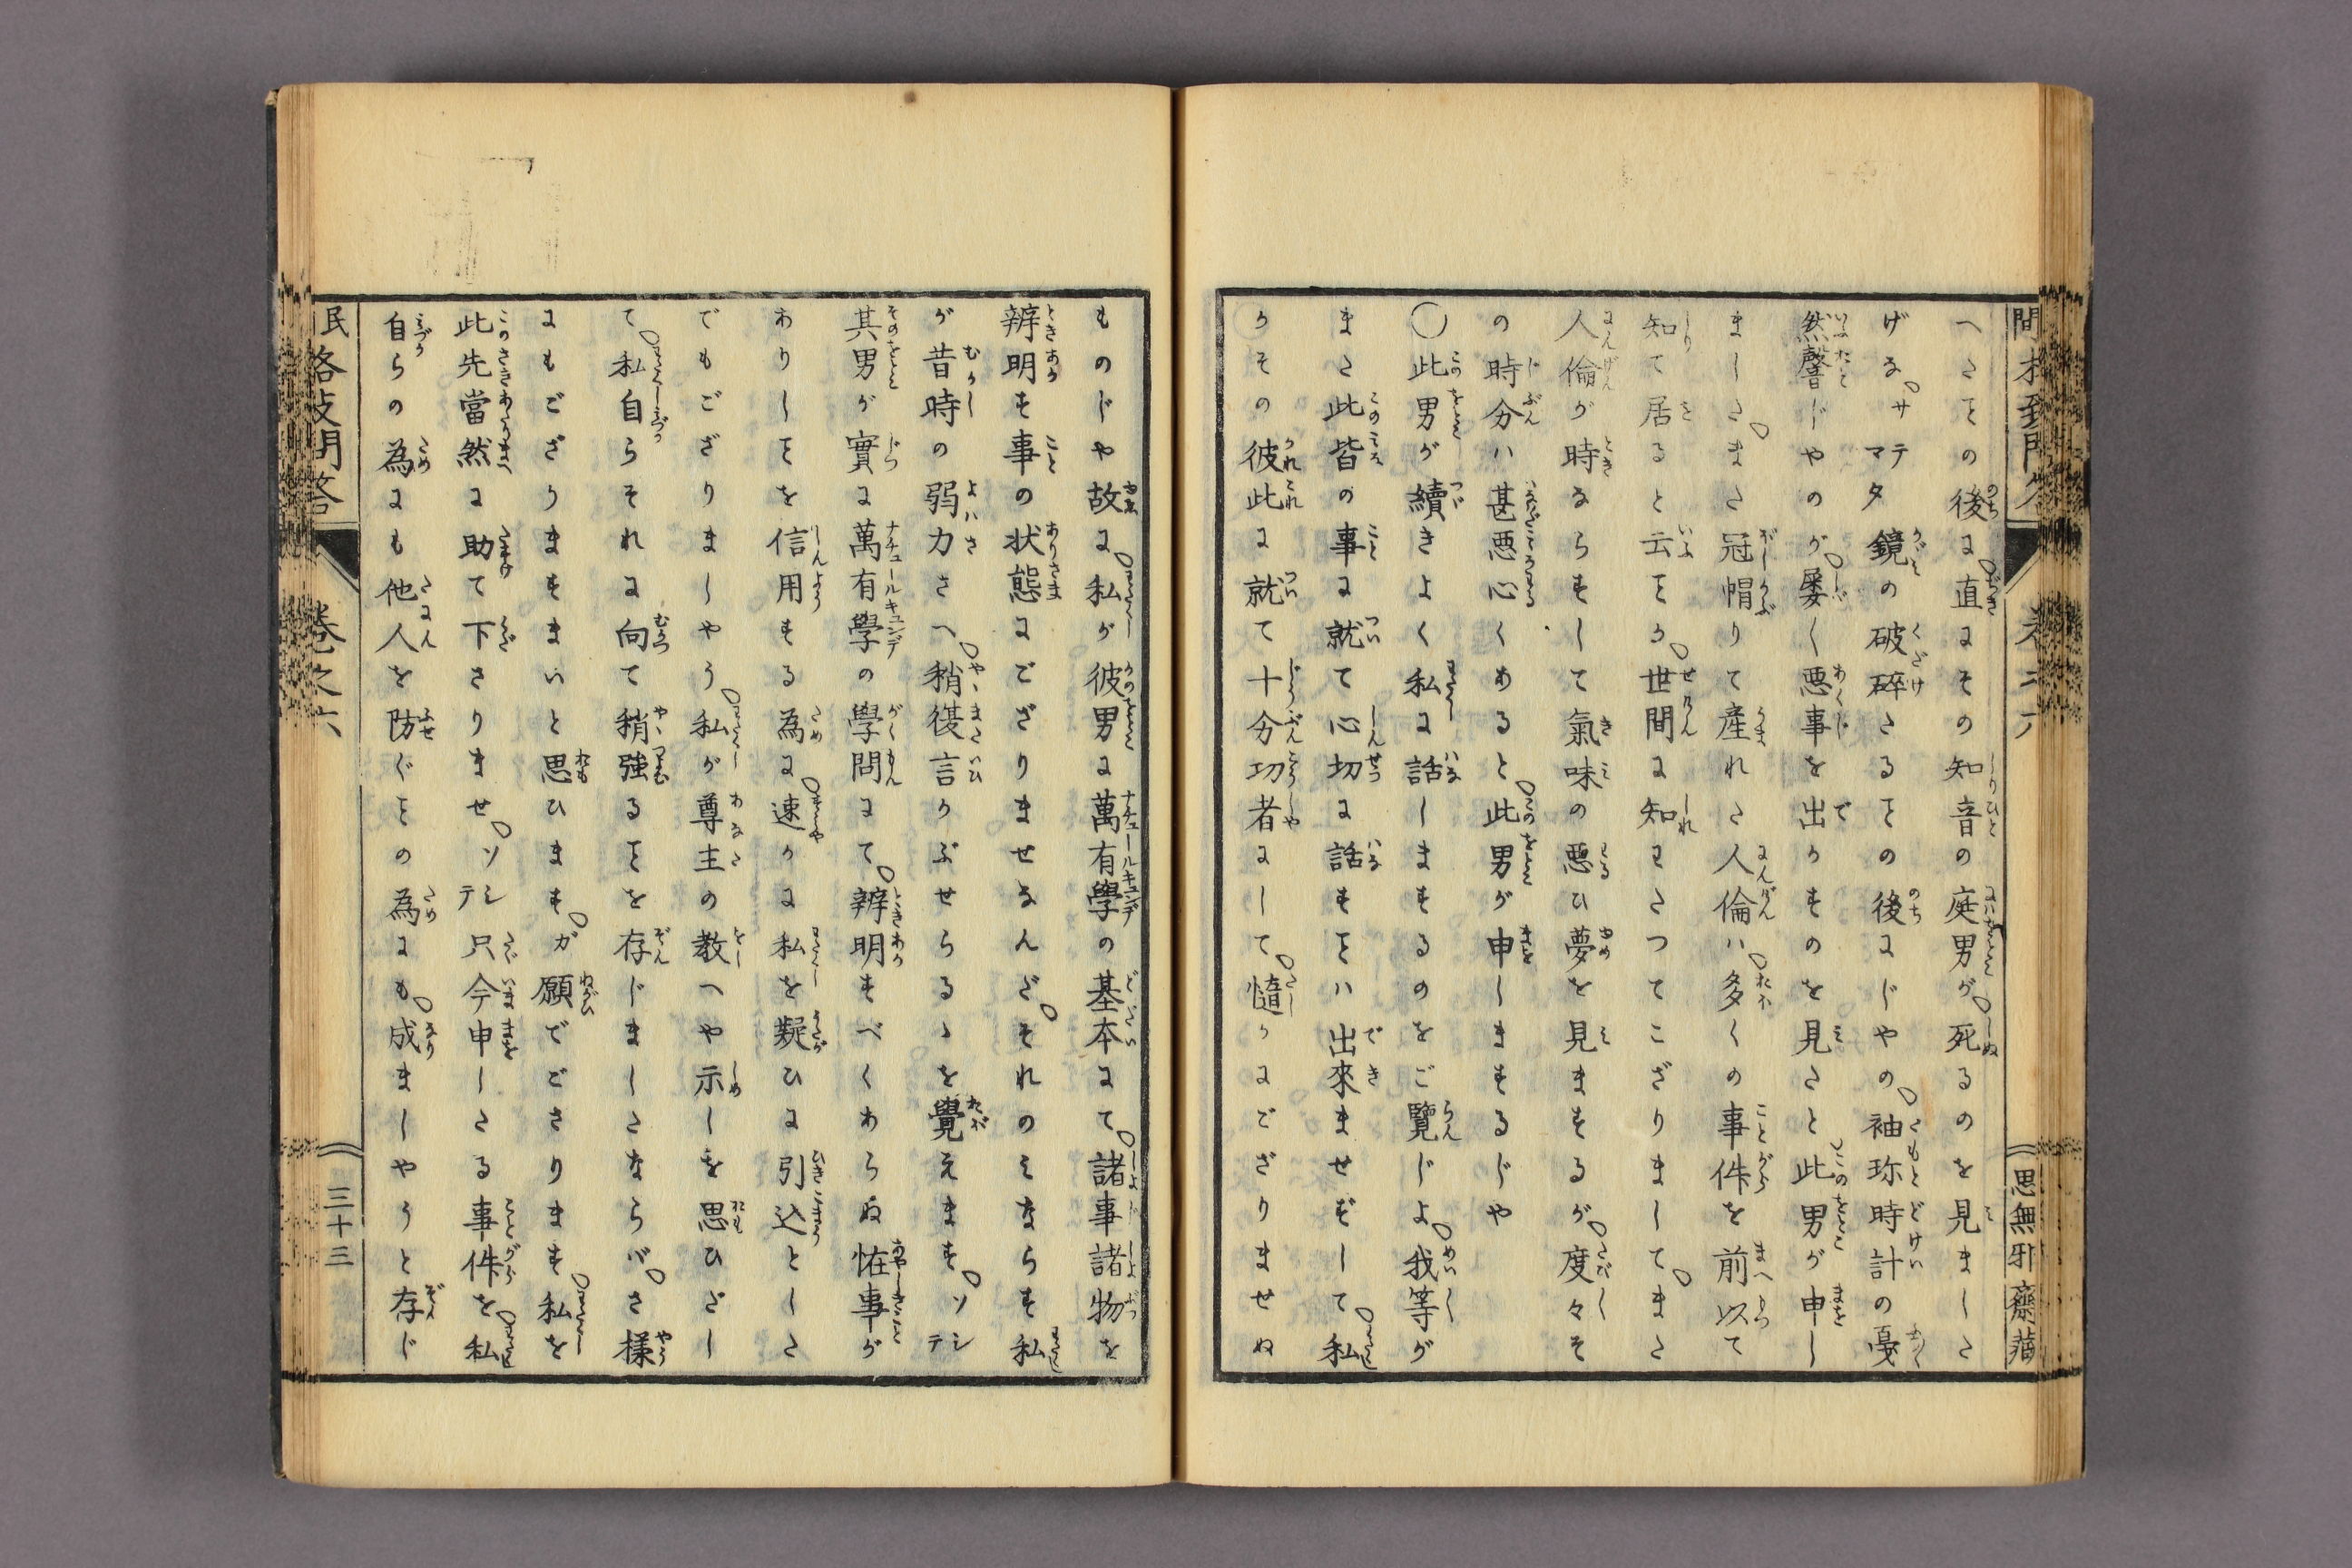 思無邪齋藏
へたヿの後に直にその知音の庭男が死るのを見ました
げな。サテマタ鏡の破碎さるヿの後にじやの。袖珎時計の戞
然聲じやのが。屡〱悪事を出かすものを見たと此男が申し
ました。また冠帽りて産れた人倫ハ。多くの事件を前以て
知て居ると云ヿか。世間に知れわたつてござりまして。また
人倫が時ならずして氣味の悪ひ夢を見まするが。度々そ
の時分ハ甚悪心くあると。此男が申しまするじや
〇此男が續きよく私に話しまするのをご覽じよ。我等が
また此皆の事に就て心切に話すヿハ出來ませずして。私
かその彼此に就て十分功者にして。慥かにござりませぬ
ものじや故に。私が彼男に萬有學の基本にて。諸事諸物を
辨明す事の状態にござりませなんだ。それのみならず私
が昔時の弱力さへ。稍 言かぶせらるゝを覺えます。ソシテ
其男が實に萬有學の學問にて。辨明すべくあらぬ恠事が
ありしヿを信用する為に。速かに私を疑ひに引込とした
でもござりましやう。私が尊主の教へや示しを思ひだし
て。私自らそれに向て稍強るヿを存じましたならバ。さ様
にもござりますまいと思ひます。ガ願でごさります。私を
此先當然に助て下さりませ。ソシテ只今申したる事件を。私
自らの為にも他人を防ぐヿの為にも。成ましやうと存じ
民格致問答 巻之六 三十三